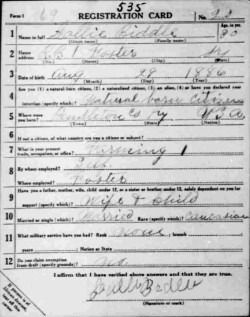 535
Form 1 69 REGISTRATION CARD No. 33
1 Name in full Hallie Riddle Age, in yrs. 30
(Given name) (Family name)
2 Home address Foster Ky
(No.) (Street) (City) (State)
3 Date of birth Aug 28 1886
(Month) (Day) (Year)
4 Are you (1) a natural-born citizen, (2) a naturalized citizen, (3) an alien, (4) or have you declared your
intention (specify which)? Natural born citizen
5 Where were you born? Ky USA
(Town) (State) (Nation)
6 If not a citizen, of what country are you a citizen or subject?
7 What is your present trade, occupation, or office? Farming
8 By whom employed? Self
Where employed? Foster
9 Have you a father, mother, wife, child under 12, or a sister or brother under 12, solely dependent on you for
support (specify which)? Wife & Child
10 Married or single (which)? Married Race (specify which)? Caucasian
11 What military service have you had? Rank None branch
years Nation or State
12 Do you claim exemption from draft (specify grounds)? No
I affirm that I have verified above answers and that they are true.
(Signature or mark)